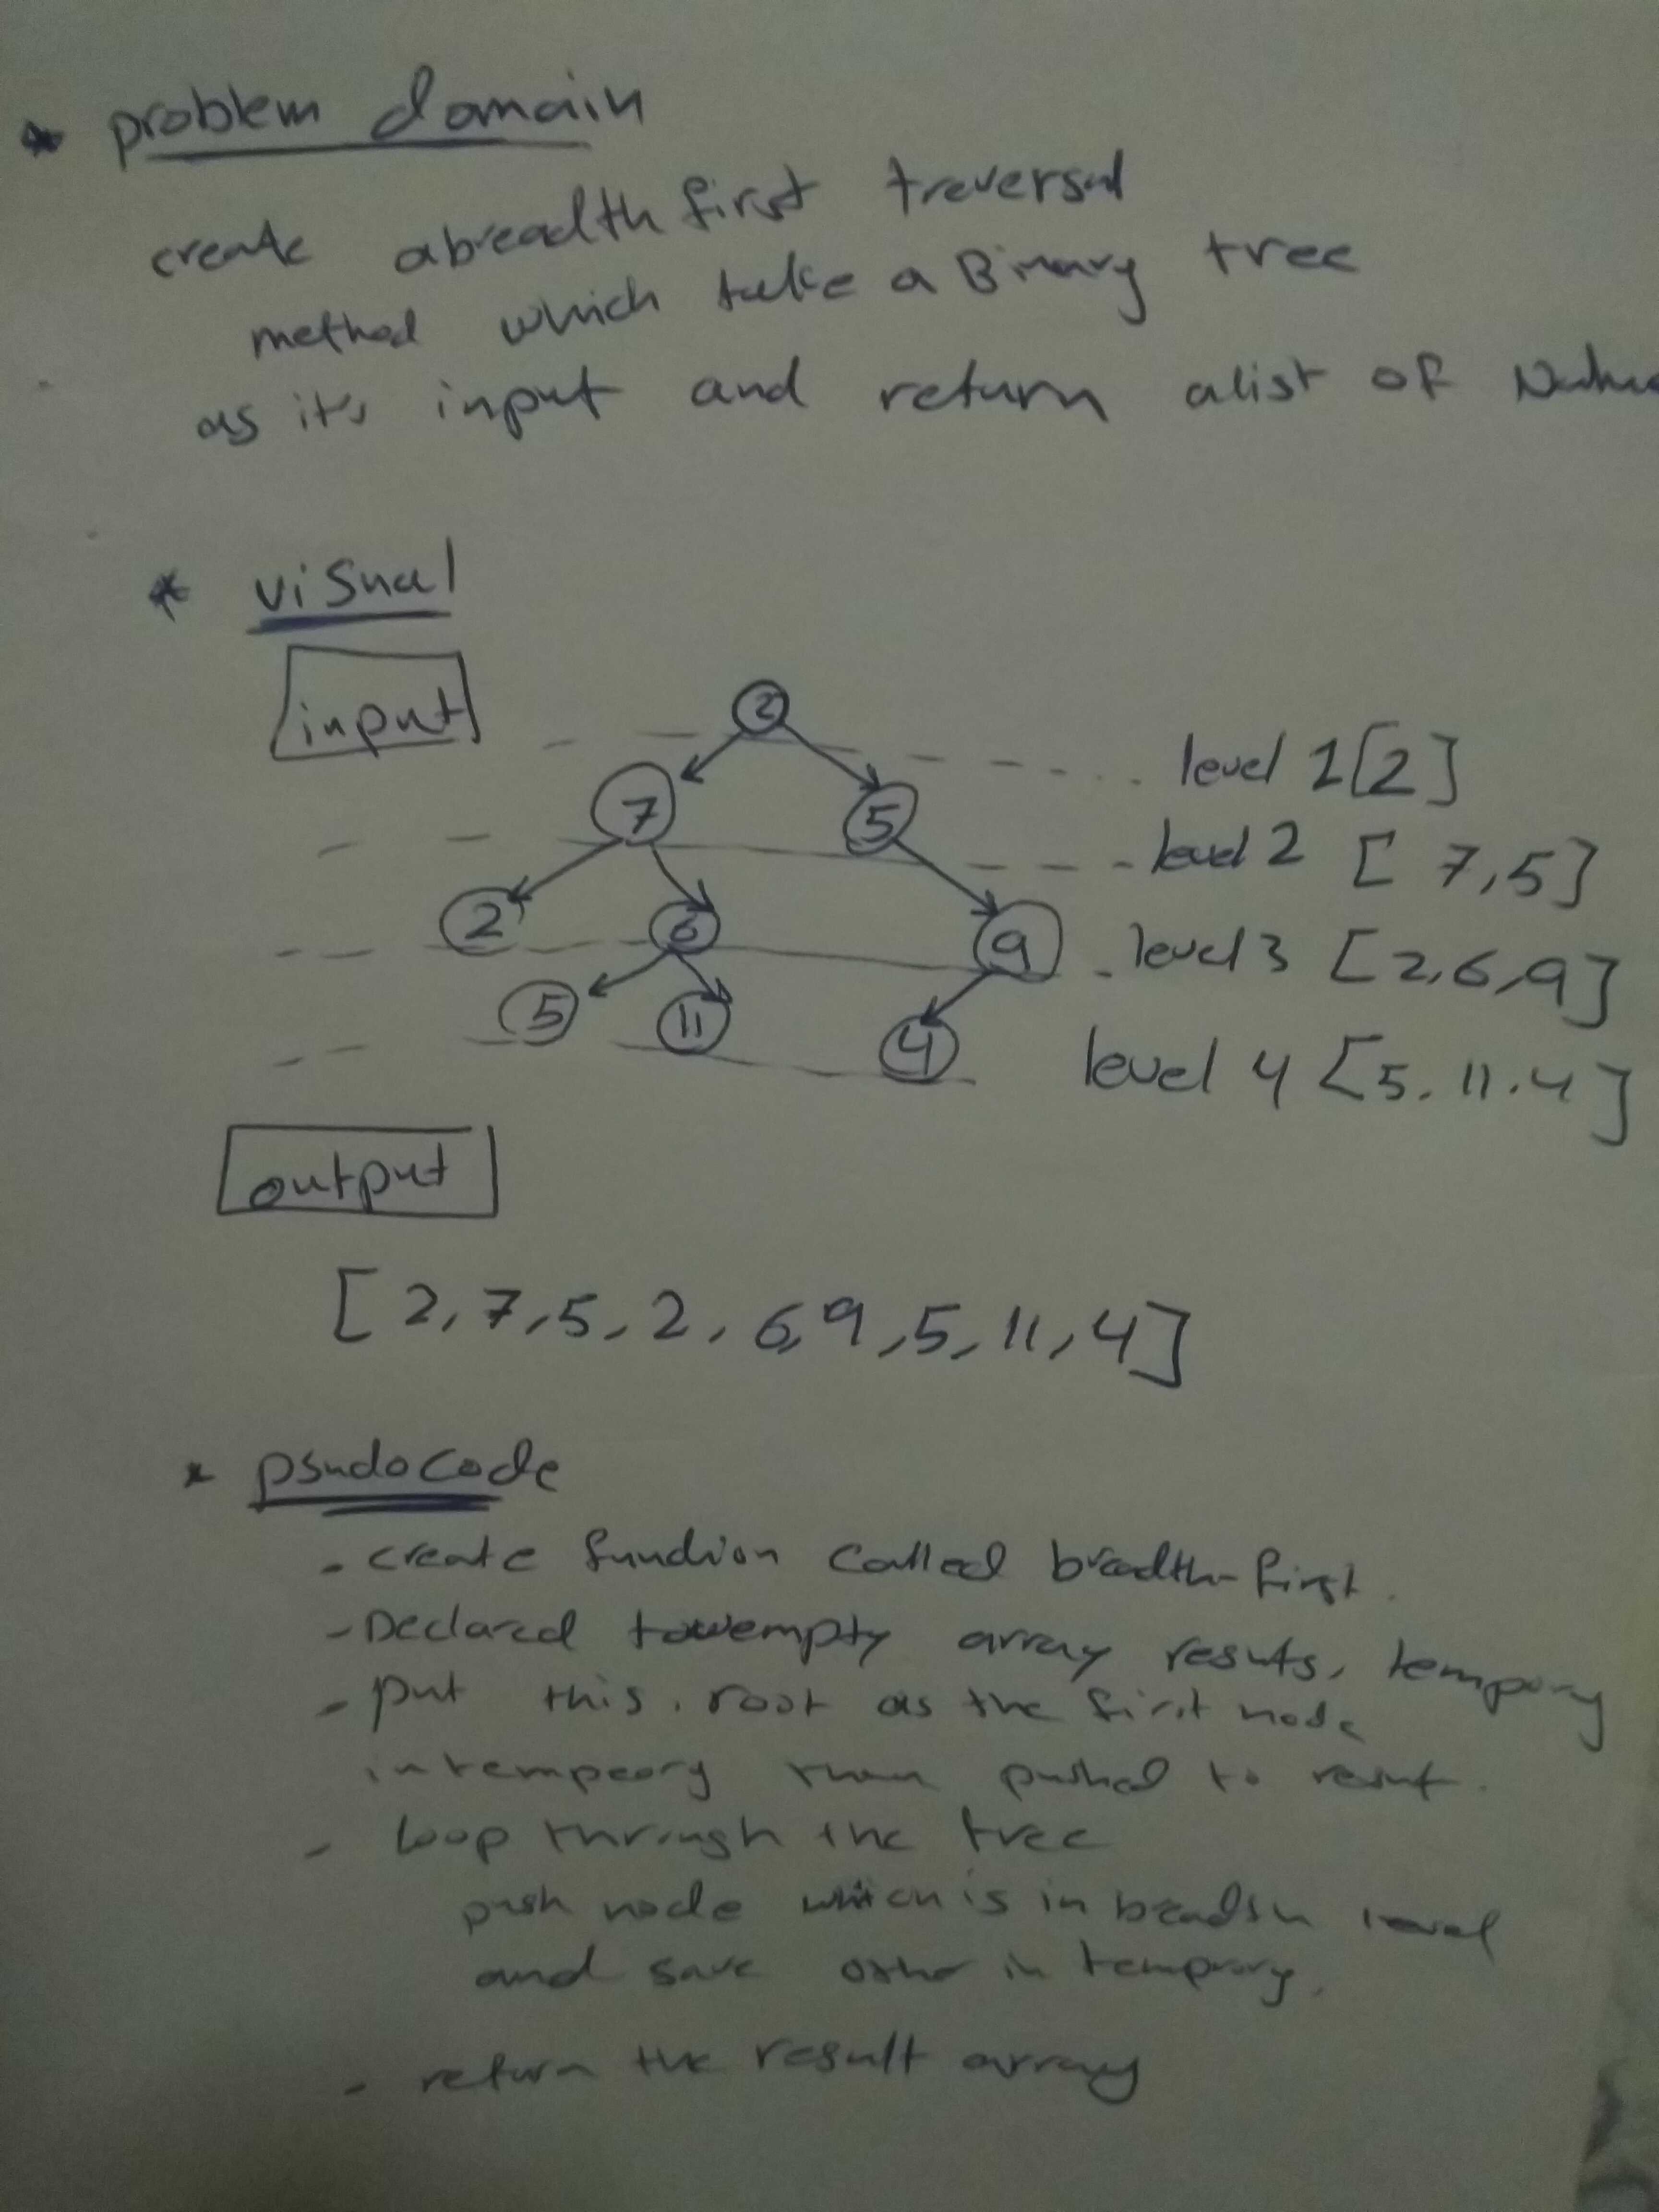 * problem domain
create abreadth first treversal
method which take a Binary tree
as it's input and return alist of
* visual
input
2
level 1 [2]
7 5
level 2 [7,5]
2 6 9
level 3 [2,6,9]
5 11 4
level 4 [5, 11, 4]
output
[2,7,5,2,6,9,5,11,4]
* psudocode
- create function called breadth-first.
- Declared towempty array resuts, tempory
- put this.root as the first node
intempeory then pushed to result.
- loop through the tree
push node which is in level
and save other in temprory.
- return the result array